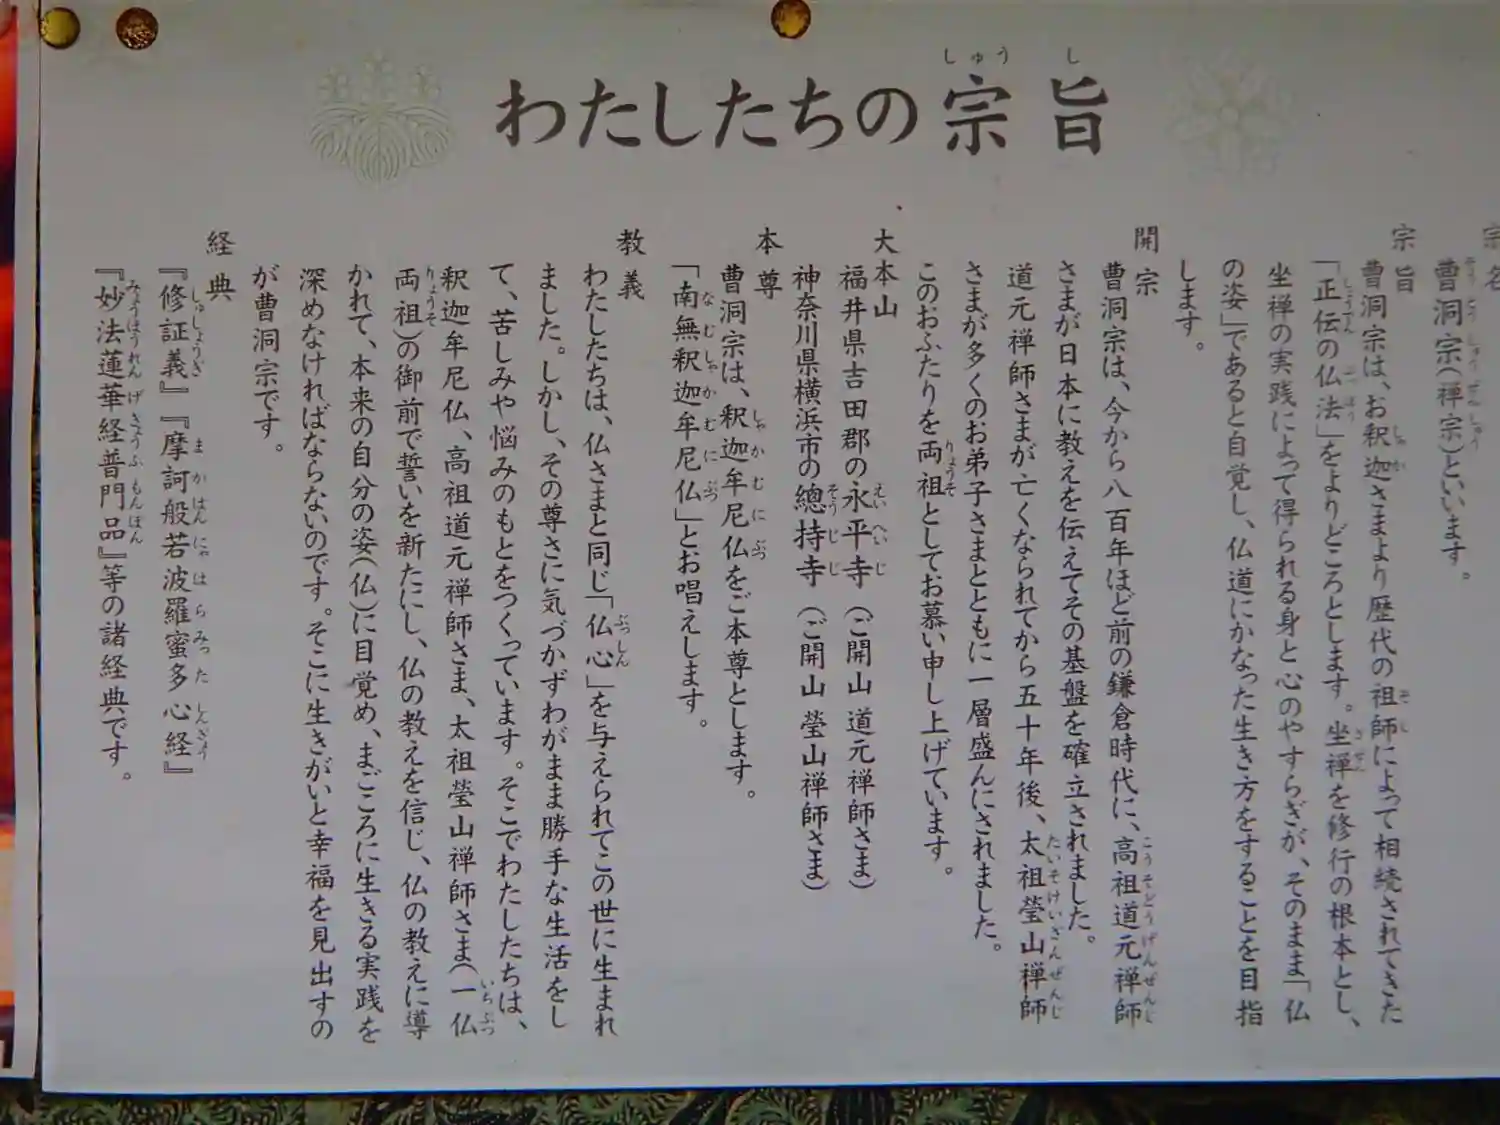 わたしたちの宗旨
宗名
曹洞宗(禅宗)といいます。
宗旨
曹洞宗は、お釈迦さまより歴代の祖師によって相続されてきた
「正伝の仏法」をよりどころとします。坐禅を修行の根本とし、
坐禅の実践によって得られる身と心のやすらぎが、そのまま「仏
の姿」であると自覚し、仏道にかなった生き方をすることを目指
します。
開宗
曹洞宗は、今から八百年ほど前の鎌倉時代に、高祖道元禅師
さまが日本に教えを伝えてその基盤を確立されました。
道元禅師さまが亡くなられてから五十年後、太祖瑩山禅師
さまが多くのお弟子さまとともに一層盛んにされました。
このおふたりを両祖としてお慕い申し上げています。
大本山
福井県吉田郡の永平寺(ご開山 道元禅師さま)
神奈川県横浜市の總持寺(ご開山 瑩山禅師さま)
本尊
曹洞宗は、釈迦牟尼仏をご本尊とします。
「南無釈迦牟尼仏」とお唱えします。
教義
わたしたちは、仏さまと同じ「仏心」を与えられてこの世に生まれ
ました。しかし、その尊さに気づかずわがまま勝手な生活をし
て、苦しみや悩みのもとをつくっています。そこでわたしたちは、
釈迦牟尼仏、高祖道元禅師さま、太祖瑩山禅師さま(一仏
両祖)の御前で誓いを新たにし、仏の教えを信じ、仏の教えに導
かれて、本来の自分の姿(仏)に目覚め、まごころに生きる実践を
深めなければならないのです。そこに生きがいと幸福を見出すの
が曹洞宗です。
経典
『修証義』『摩訶般若波羅蜜多心経』
『妙法蓮華経普門品』等の諸経典です。